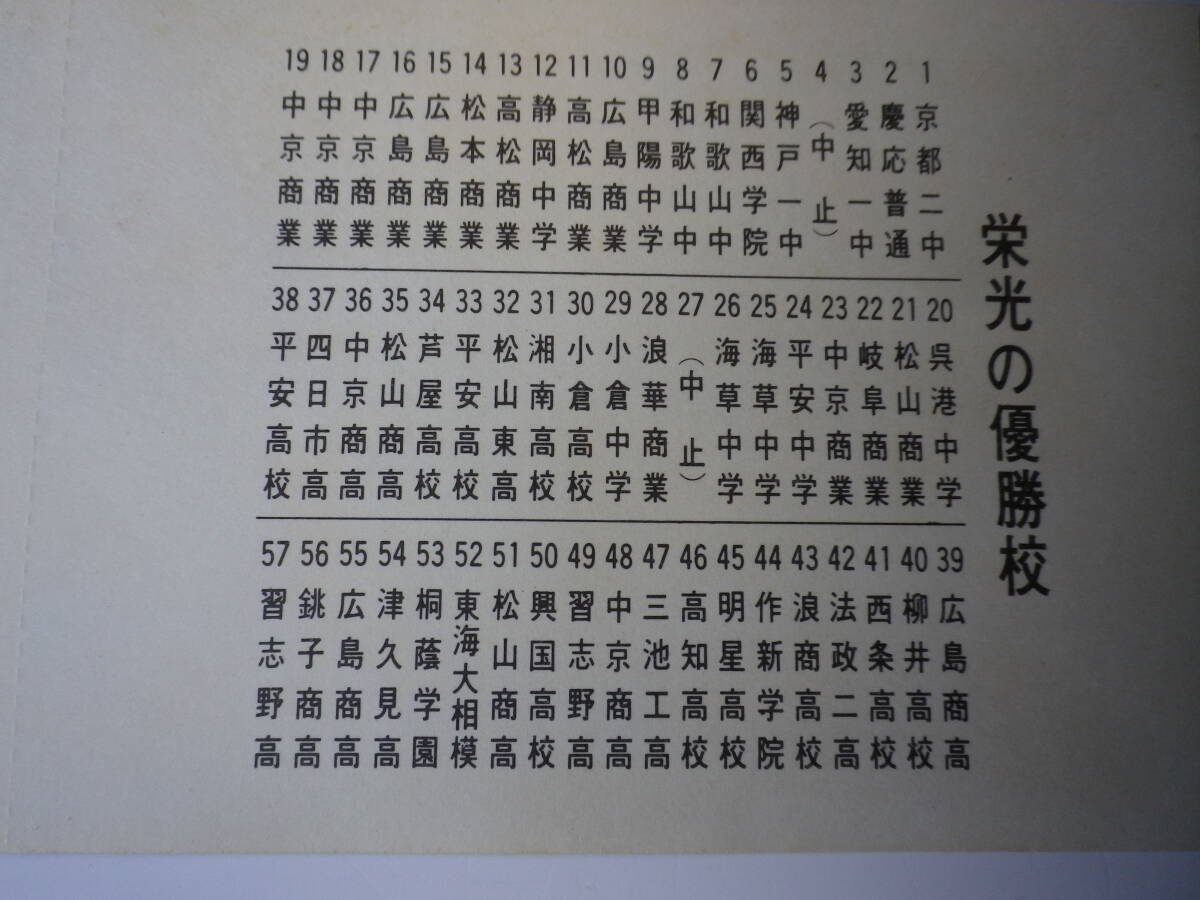 栄光の優勝校
1 京都二中
2 慶応普通
3 愛知一中
4 （中止）
5 神戸一中
6 関西学院
7 和歌山中
8 和歌山中
9 甲陽中学
10 広島商業
11 高松商業
12 静岡中学
13 高松商業
14 松本商業
15 広島商業
16 広島商業
17 中京商業
18 中京商業
19 中京商業
20 呉港中学
21 松山商業
22 岐阜商業
23 中京商業
24 平安中学
25 海草中学
26 海草中学
27 （中止）
28 浪華商業
29 小倉中学
30 小倉高校
31 湘南高校
32 松山東高
33 平安高校
34 芦屋高校
35 松山商高
36 中京商高
37 四日市高
38 平安高校
39 広島商高
40 柳井高校
41 西条高校
42 法政二高
43 浪商高校
44 作新学院
45 明星高校
46 高知高校
47 三池工高
48 中京商高
49 習志野高
50 興国高校
51 松山商高
52 東海大相模
53 桐蔭学園
54 津久見高
55 広島商高
56 銚子商高
57 習志野高